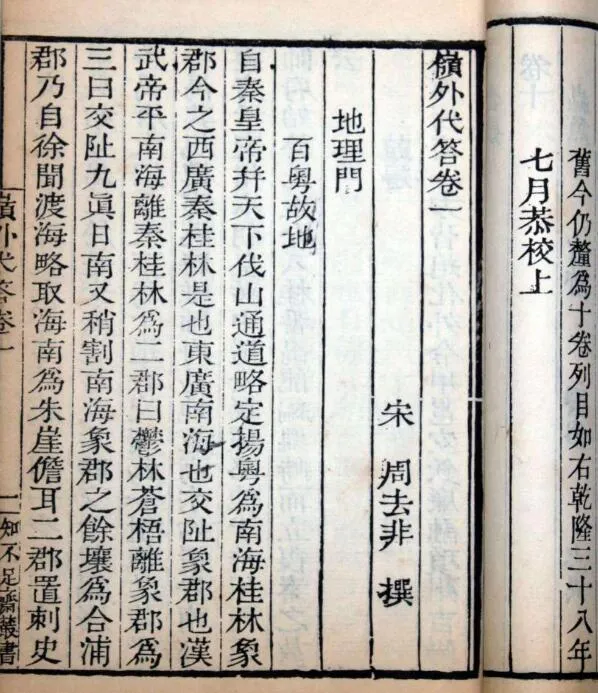 舊今仍釐為十卷列目如右乾隆三十八年
七月恭校上
嶺外代答卷一
宋 周去非 撰
地理門
百粵故地
自秦皇帝幷天下伐山通道略定揚粵為南海桂林象
郡今之西廣秦桂林是也東廣南海也交阯象郡也漢
武帝平南海離秦桂林為二郡曰鬱林蒼梧離象郡為
三曰交阯九眞日南又稍割南海象郡之餘壤為合浦
郡乃自徐聞渡海略取海南為朱崖儋耳二郡置刺史
嶺外代答卷一
一
知不足齋叢書